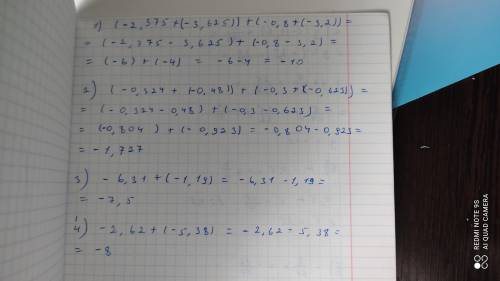 1) (-2,375 + (-3,625)) + (-0,8 + (-3,2)) =
= (-2,375 - 3,625) + (-0,8 - 3,2) =
= (-6) + (-4) = -6-4 = -10
2) (-0,324 + (-0,48)) + (-0,3 + (-0,623)) =
= (-0,324 - 0,48) + (-0,3 - 0,623) =
= (-0,804) + (-0,923) = -0,804 - 0,923 =
= -1,727
3) - 6,31 + (-1,19) = -6,31 - 1,19 =
= -7,5
4) -2,62 + (-5,38) = -2,62 - 5,38 =
= -8
REDMI NOTE 9S
AI QUAD CAMERA